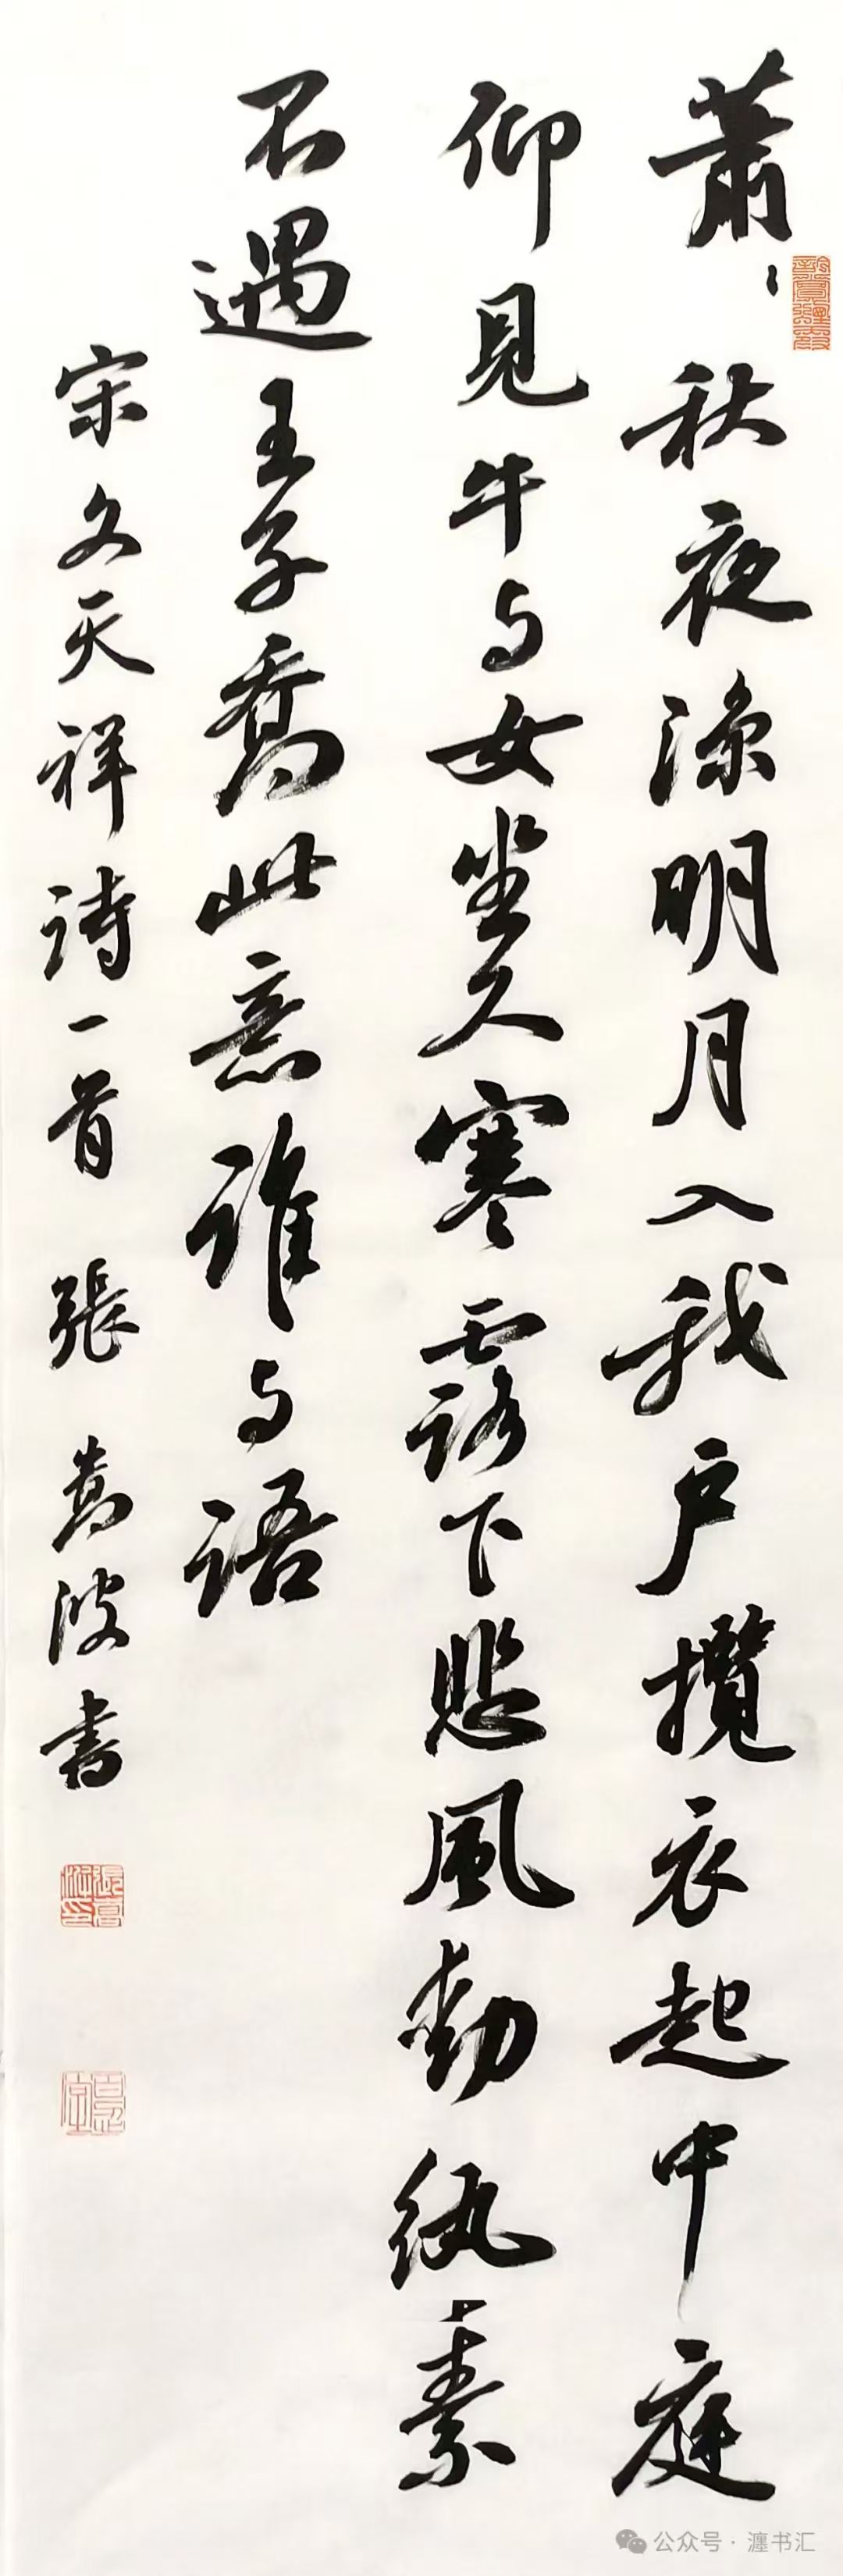 蕭〻秋夜涼明月入我户攬衣起中庭
仰見牛与女坐久寒露下悲風動紈素
不遇王子喬此意誰与語
宋文天祥詩一首 張喬波書
公众号·瀍书汇